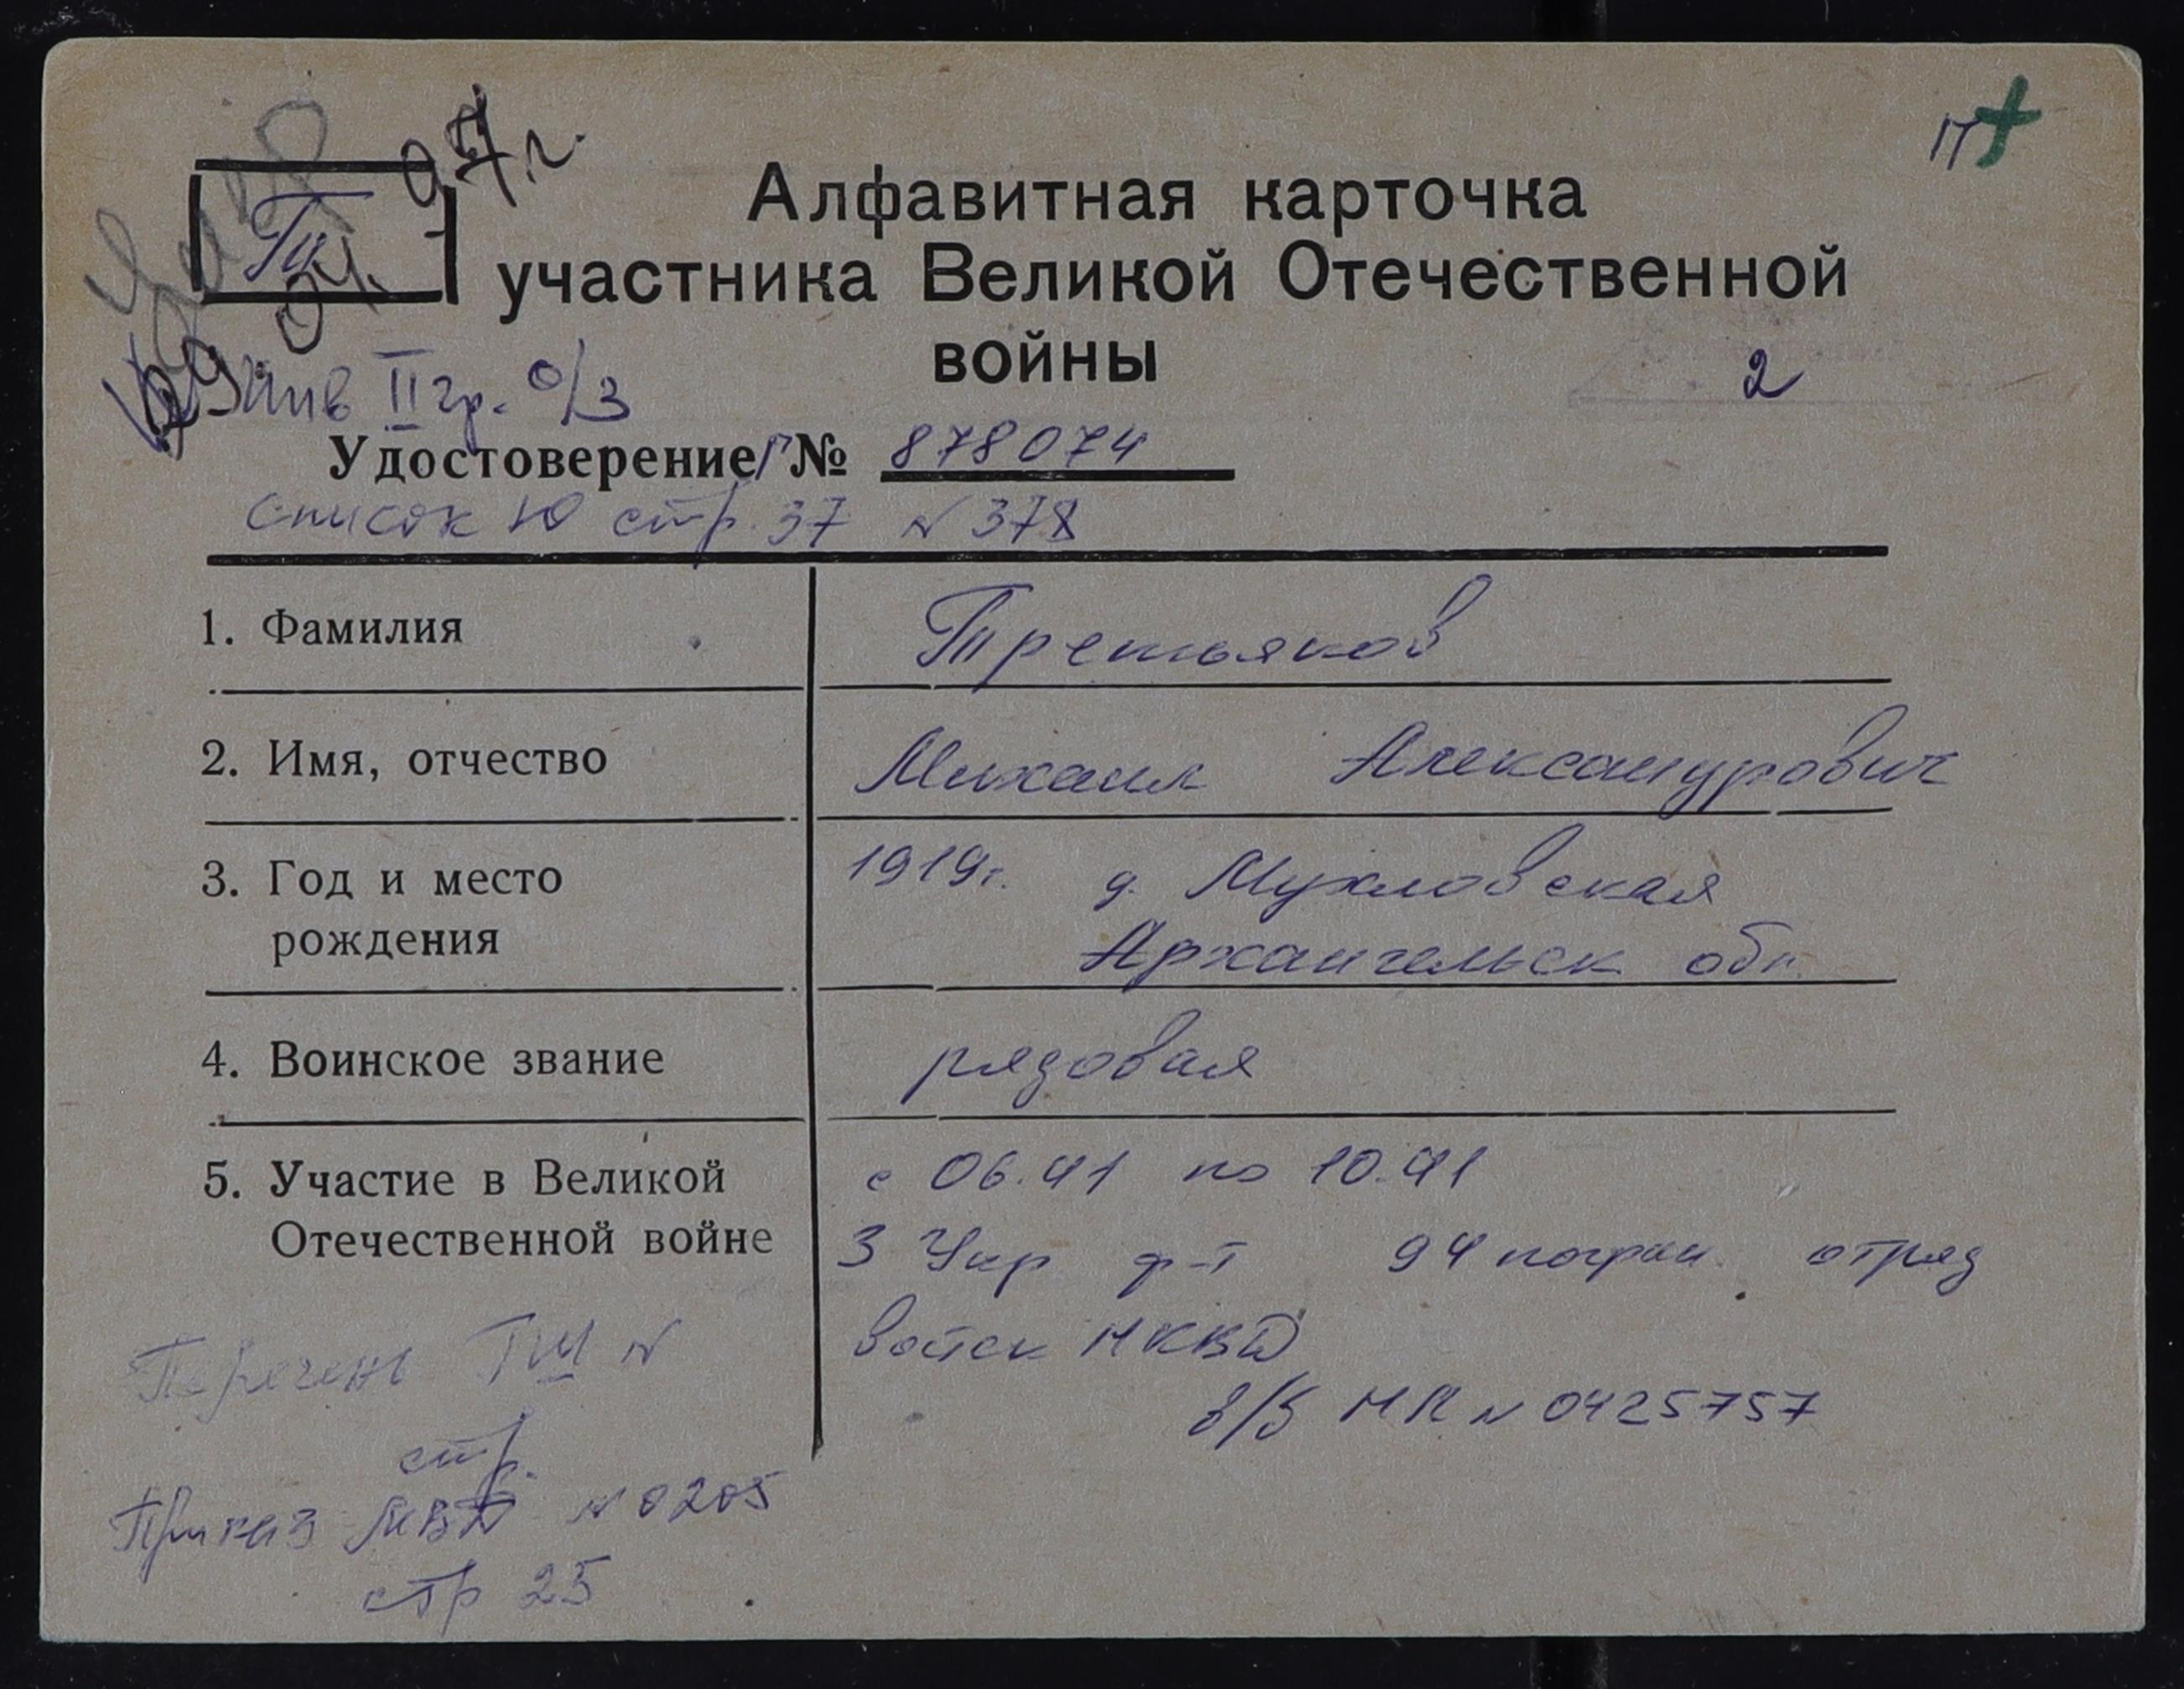 97г.
П
Алфавитная карточка
Тп
участника Великой Отечественной
04.
войны
2
Умер
29
инв II гр. о/з
Удостоверение Г № 878074
список Ю стр. 37 N 378
1. Фамилия Третьяков
2. Имя, отчество Михаил Александрович
3. Год и место 1919г. д. Мухловская
рождения Архангельск обл.
4. Воинское звание рядовая
5. Участие в Великой с 06.41 по 10.41
Отечественной войне 3 Укр ф-т 94 погран. отряд
войск НКВД
Перечень ГШ N
в/б НК N 0425757
стр.
Приказ МВД N 0205
стр 25